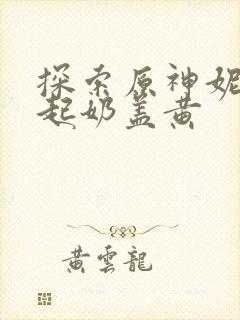 探索原神妮
起奶盖黄
黄雲龍